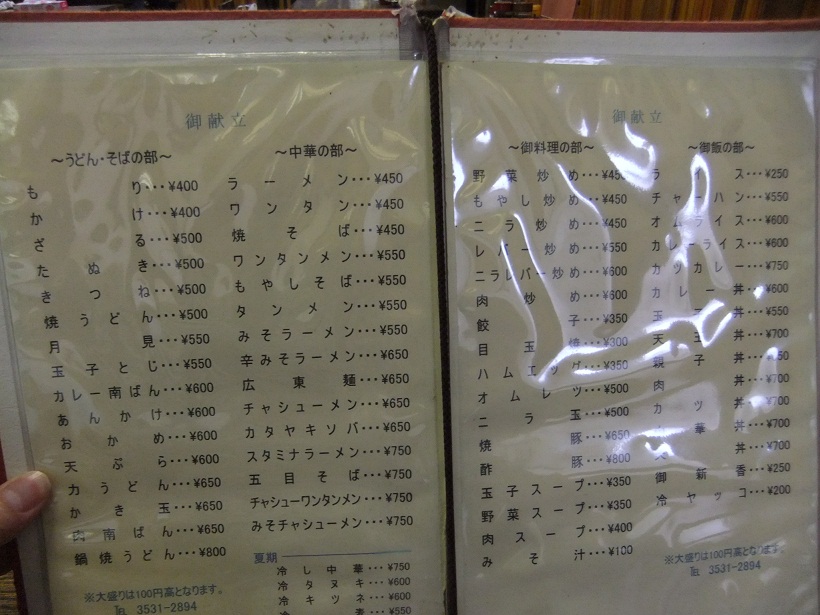 御献立
〜うどん・そばの部〜
もり・・・¥400
かけ・・・¥400
ざる・・・¥500
たぬき・・・¥500
きつね・・・¥500
焼うどん・・・¥500
月見・・・¥550
玉子とじ・・・¥550
カレー南ばん・・・¥600
あんかけ・・・¥600
おかめ・・・¥600
天ぷら・・・¥600
力うどん・・・¥650
かき玉・・・¥650
肉南ばん・・・¥650
鍋焼うどん・・・¥800
※大盛りは100円高となります。
℡ 3531-2894
〜中華の部〜
ラーメン・・・¥450
ワンタン・・・¥450
焼そば・・・¥450
ワンタンメン・・・¥550
もやしそば・・・¥550
タンメン・・・¥550
みそラーメン・・・¥550
辛みそラーメン・・・¥650
広東麺・・・¥650
チャシューメン・・・¥650
カタヤキソバ・・・¥650
スタミナラーメン・・・¥750
五目そば・・・¥750
チャシューワンタンメン・・・¥750
みそチャシューメン・・・¥750
夏期
冷し中華・・・¥750
冷タヌキ・・・¥600
冷キツネ・・・¥600
・・・¥550
御献立
〜御料理の部〜
野菜炒め・・・¥450
もやし炒め・・・¥450
ニラ炒め・・・¥450
レバー炒め・・・¥550
ニラレバー炒め・・・¥600
肉炒め・・・¥600
餃子・・・¥350
目玉焼・・・¥300
ハムエッグ・・・¥350
オムレツ・・・¥500
ニラ玉・・・¥500
焼豚・・・¥650
酢豚・・・¥800
玉子スープ・・・¥350
野菜スープ・・・¥350
肉スープ・・・¥400
みそ汁・・・¥100
〜御飯の部〜
ライス・・・¥250
チャーハン・・・¥550
オムライス・・・¥600
カレーライス・・・¥600
カツカレー・・・¥750
カレー丼・・・¥600
玉子丼・・・¥550
天玉丼・・・¥700
親子丼・・・
肉丼・・・¥700
カツ丼・・・¥700
華丼・・・¥700
丼・・・¥700
御新香・・・¥250
冷ヤッコ・・・¥200
※大盛りは100円高となります。
℡ 3531-2894